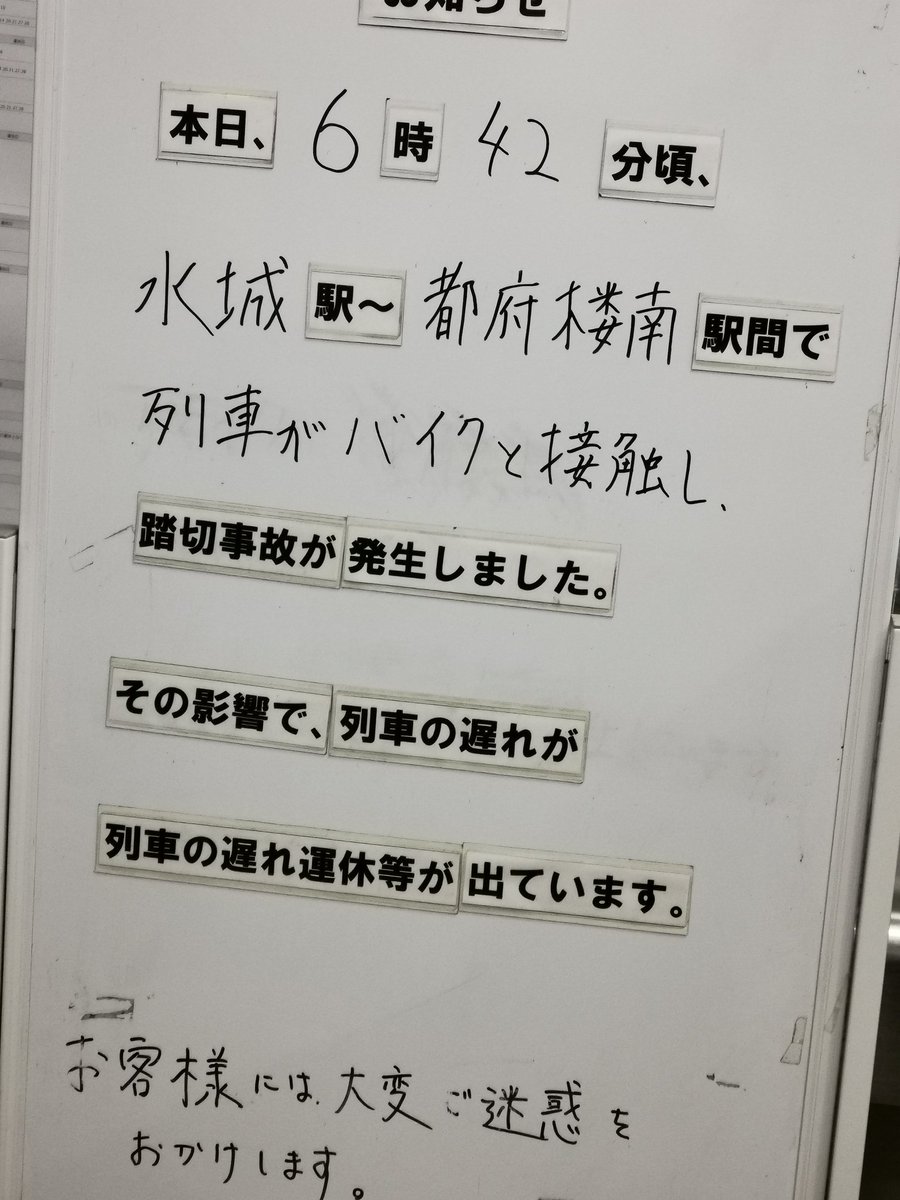 お知らせ
本日、6時42分頃、
水城駅～都府楼南駅間で
列車がバイクと接触し、
踏切事故が発生しました。
その影響で、列車の遅れが
列車の遅れ運休等が出ています。
お客様には大変ご迷惑を
おかけします。